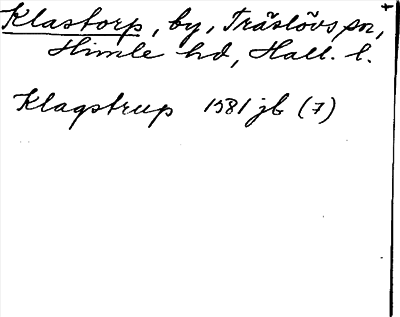 Klastorp, by, Träslövs sn,
Himle hd, Hall. l.
Klagstrup 1581 jb (7)